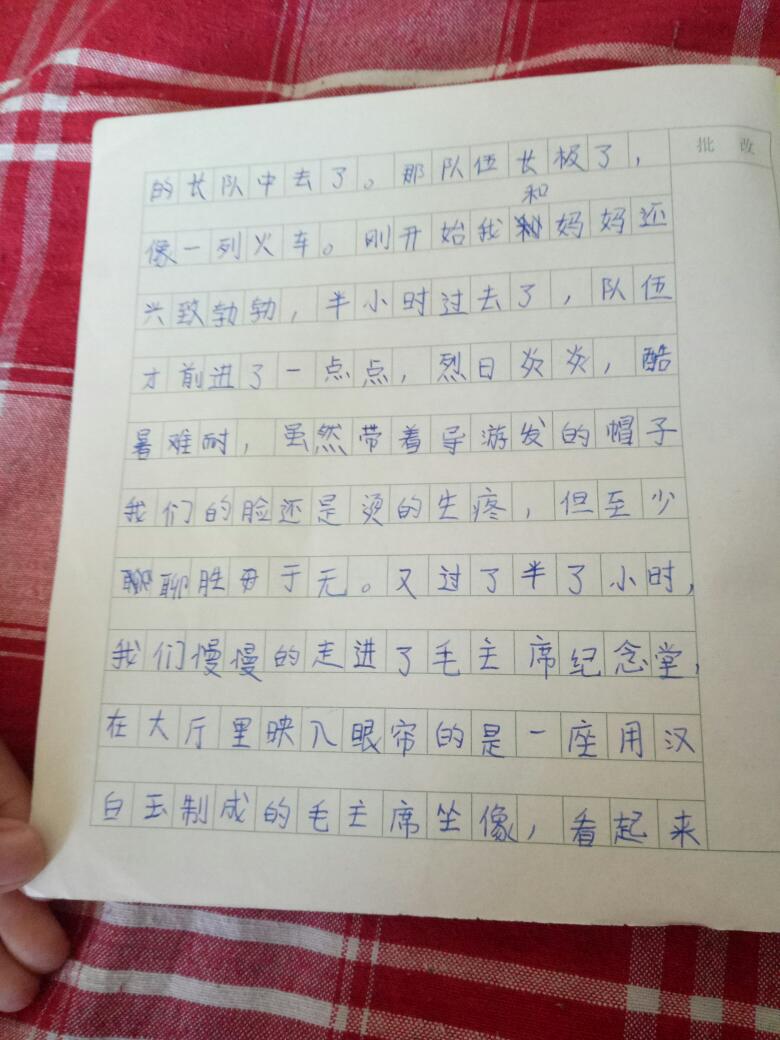 批 改
的长队中去了。那队伍长极了，
像一列火车。刚开始我和妈妈还
兴致勃勃，半小时过去了，队伍
才前进了一点点，烈日炎炎，酷
暑难耐，虽然带着导游发的帽子
我们的脸还是烫的生疼，但至少
聊胜毋于无。又过了半了小时，
我们慢慢的走进了毛主席纪念堂，
在大厅里映入眼帘的是一座用汉
白玉制成的毛主席坐像，看起来